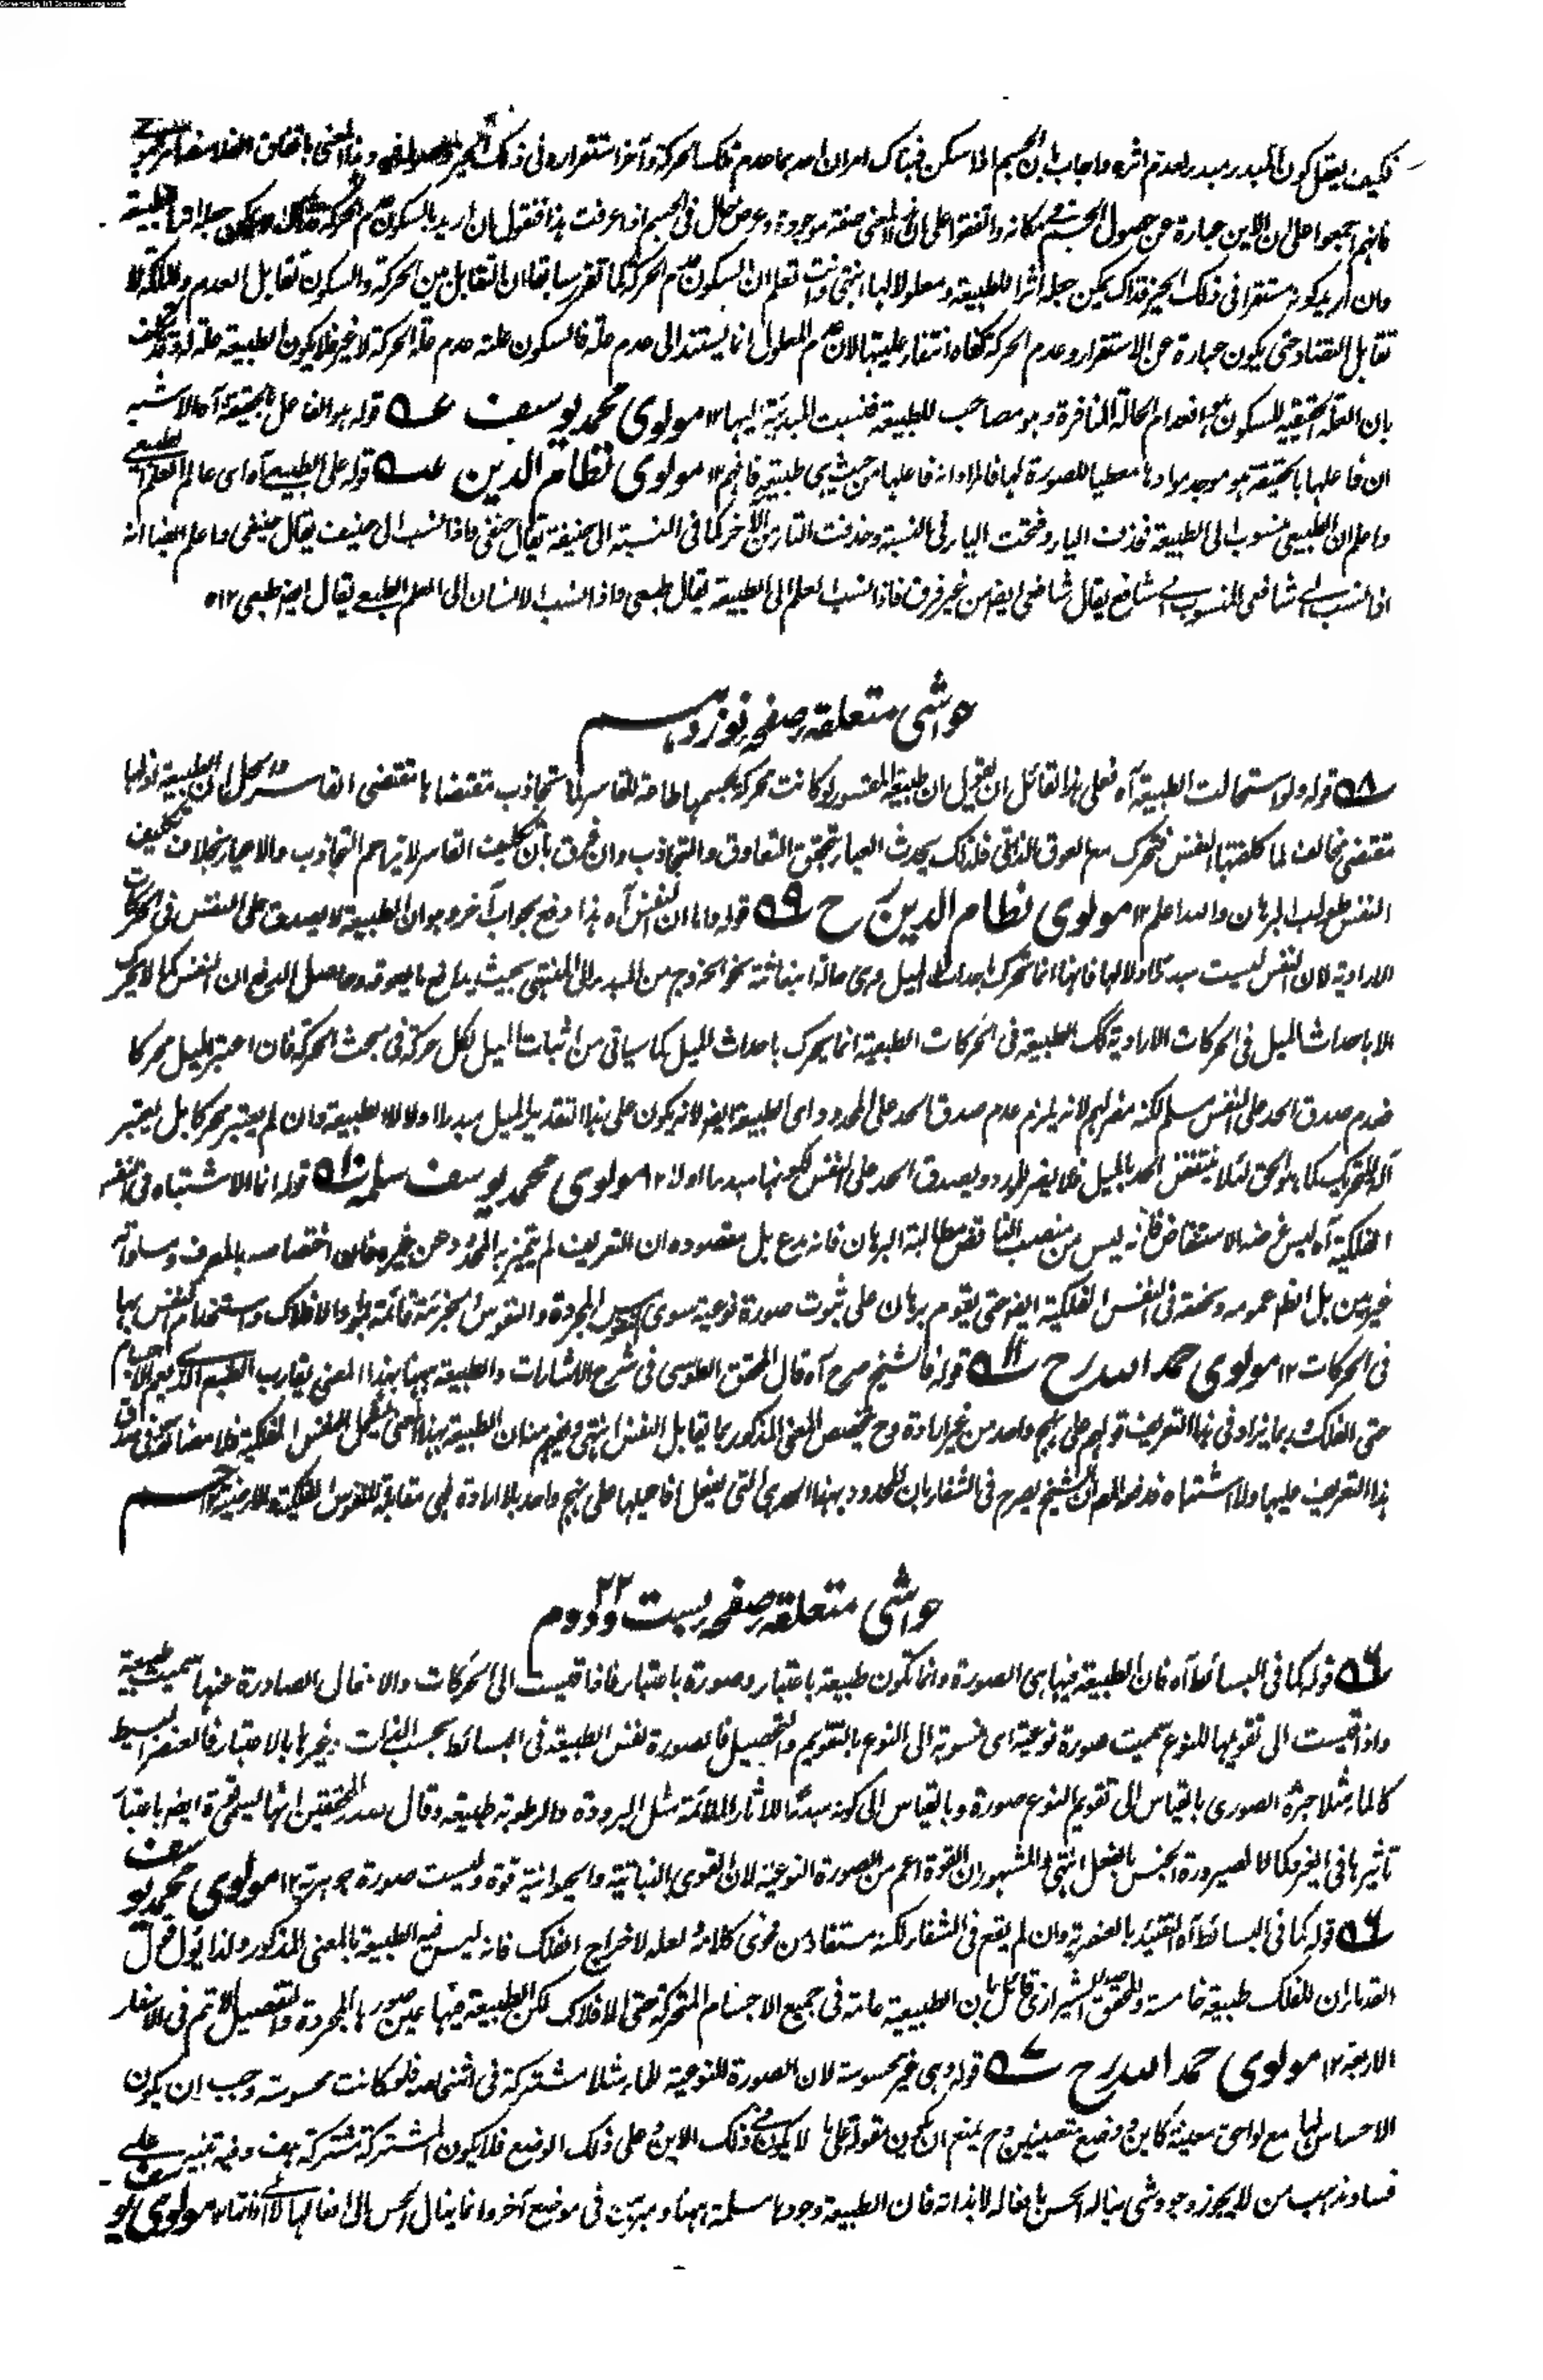 فكيف يعقل كون المبدء مبدء لعدم اثره واجاب بان الجسم اذا سكن فهناك امران احدهما عدم تلك الحركة وآخر استقراره فى ذلك الحيز
فانهم اجمعوا على ان الاين عبارة عن حصول الجسم فى مكانه واتفقوا على ان هذا المعنى صفة موجودة وعرض حال فى الجسم اذا عرفت هذا فنقول ان اريد بالسكون عدم الحركة
وان اريد كونه مستقرا فى ذلك الحيز فذاك يمكن جعله اثرا للطبيعة ومعلولا لها انتهى وانت تعلم ان السكون عدم الحركة كما تقرر سابقا ان التقابل بين الحركة والسكون تقابل العدم والملكة لا
تقابل التضاد حتى يكون عبارة عن الاستقرار وعدم الحركة كفاه انتفاء عليتها لان عدم المعلول انما يستند الى عدم علته فالسكون علته عدم علة الحركة لا غير فلا يكون الطبيعة علة له
بان العلة الحقيقية للسكون هو انعدام الحالة المنافرة وهو مصاحب للطبيعة فنسبت المبدئية اليها ١٢ مولوى محمد يوسف قوله هو الفاعل بالحقيقة آه الاشبه
ان فاعلها بالحقيقة هو موجد موادها معطيا للصورة لها فالمراد انه فاعلها من حيث هى طبيعة فافهم ١٢ مولوى نظام الدين قوله على الطبيعى آه اى عالم العلم الطبيعى
واعلم ان الطبيعى منسوب الى الطبيعة فحذفت الياء وفتحت الباء فى النسبة وحذفت التاء من الآخر كما فى النسبة الى حنيفة يقال حنفى واذا نسب الى حنيف يقال حنيفى واعلم ايضا انه
اذا نسب الى شافعى المنسوب الى شافع يقال شافعى ايضا من غير فرق فاذا نسب العلم الى الطبيعة يقال طبعى واذا نسب الانسان الى العلم الطبعى يقال ايضا طبعى ١٢
حواشى متعلقه صفحه نوزدهم
٥٨ قوله ولو استحالت الطبيعة آه فعلى هذا القائل ان يقول ان طبيعة المقسور لو كانت محركة لجسمها طاعة للقاسر لما تجاذب مقتضاها مقتضى القاسر
مقتضى مخالف لما كلفتها النفس فتحرك مع العوق الذاتى فلذلك يحدث العياء لتحقق التعاوق والتجاذب وان فرق بان تكليف القاسر لا يزاحم التجاذب والاعياء بخلاف تكليف
النفس طولب البرهان والله اعلم ١٢ مولوى نظام الدين رح ٥٩ قوله واما ان النفس آه هذا دفع بجواب آخر وهو ان الطبيعة لا يصدق على النفس فى الحركات
الارادية لان النفس ليست مبدءًا اولا لها فانها انما تحرك باحداث الميل وهى حالة انبعاثة نحو الخروج من المبدء الى المنتهى بحيث يدافع ما يعوقه وحاصل الدفع ان النفس كما لا يحرك
الا باحداث الميل فى الحركات الارادية كك الطبيعة فى الحركات الطبعية انما يحرك باحداث الميل كما سياتى من اثبات الميل لكل حركة فى مبحث الحركة فان اعتبر الميل محركا
فعدم صدق الحد على النفس مسلم لكنه مضر لهم لانه يلزم عدم صدق الحد على المحدود اى الطبيعة ايضا لانه يكون على هذا التقدير الميل مبدءا اولا لا الطبيعة وان لم يعتبر محركا بل يعتبر
آلة للتحريك كما هو الحق لئلا ينتقض الحد بالميل فلا يضر المحدود ويصدق الحد على النفس لكونها مبدءا اولا ١٢ مولوى محمد يوسف سلمه ٥١٠ قوله انما الاشتباه فى النفس
الفلكية آه ليس غرضه الاستنقاض فانه ليس من منصب الناقض مطالبة البرهان فانه مدع بل مقصوده ان التعريف لم يتميز به المحدود عن غيره فان اختصاصه بالمعرف ومساواته
غير بين بل الظاهر عمومه وتحققه فى النفس الفلكية ايضا حتى يقوم برهان على ثبوت صورة نوعية سوى النفوس المجردة والنفوس الجزئية قائمة بمواد الافلاك واستخدام النفس بها
فى الحركات ١٢ مولوى حمد الله رح ٥١١ قوله فالشيخ صرح آه قال المحقق الطوسى فى شرح الاشارات والطبيعة ههنا بهذا المعنى يقارب الطبع الذى يعم الاجسام
حتى الفلك ربما يزاد فى هذا التعريف قولهم على نهج واحد من غير ارادة وح يختص المعنى المذكور بما يقابل النفس انتهى ويفهم منه ان الطبيعة بهذا المعنى يشمل النفس الفلكية فلا مضائقة فى صدق
هذا التعريف عليها ولا اشتباه فدفعه المصـ بان الشيخ يصرح فى الشفاء بان المحدود بهذا الحد هى التى يفعل افاعيلها على نهج واحد بلا ارادة فهى مقابلة للنفوس الفلكية والارضية
حواشى متعلقه صفحه بست ودوم ٢٢
٥٦ قوله كما فى البسائط آه فان الطبيعة فيها هى الصورة وانما تكون طبيعة باعتبار وصورة باعتبار فاذا قيست الى الحركات والافعال الصادرة عنها سميت طبيعة
واذا قيست الى تقويمها للنوع سميت صورة نوعية اى منسوبة الى النوع بالتقويم والتحصيل فالصورة نفس الطبيعة فى البسائط بحسب الذات وغيرها بالاعتبار فالعنصر البسيط
كالماء مثلا جزئه الصورى بالقياس الى تقويم النوع صورة وبالقياس الى كونه مبدئا للآثار الملائمة مثل البرودة والرطوبة طبيعة وقال صدر المحققين انها ليسمى قوة ايضا باعتبار
تاثيرها فى الغير وكمالا لصيرورة الجنس بالفعل انتهى والمشهور ان القوة اعم من الصورة النوعية لان القوى النباتية والحيوانية قوة وليست صورة جوهرية ١٢ مولوى محمد يوسف
٥٦ قوله كما فى البسائط آه التقييد بالعنصرية وان لم يقع فى الشفاء لكنه مستفاد من فحوى كلامه لعله لاخراج الفلك فانه ليس فيه الطبيعة بالمعنى المذكور ولذا يؤل قول
القدماء ان للفلك طبيعة خامسة والمحقق الشيرازى قائل بان الطبيعة عامة فى جميع الاجسام المتحركة حتى الافلاك لكن الطبيعة فيها عين صورها المجردة والتفصيل الاتم فى الاسفار
الاربعة ١٢ مولوى حمد الله رح ٥٧ قوله وهى غير محسوسة لان الصورة النوعية للماء مثلا مشتركة فى اشخاصه فلو كانت محسوسة وجب ان يكون
الاحساس لها مع لواحق معينة كاين ووضع متعينين وح يمنع ان يكون مقولة على ما لا يكون فى ذلك الاين وعلى ذلك الوضع فلا يكون المشتركة مشتركة هف وفيه تنبيه على
فساد مذهب من لا يجوز وجود شى يناله الحس بافعاله لا بذاته فان الطبيعة وجودها مسلمة ههنا ومبرهن فى موضع آخر وانما ينال الحس الى افعالها لا ذاتها ١٢ مولوى يوسف